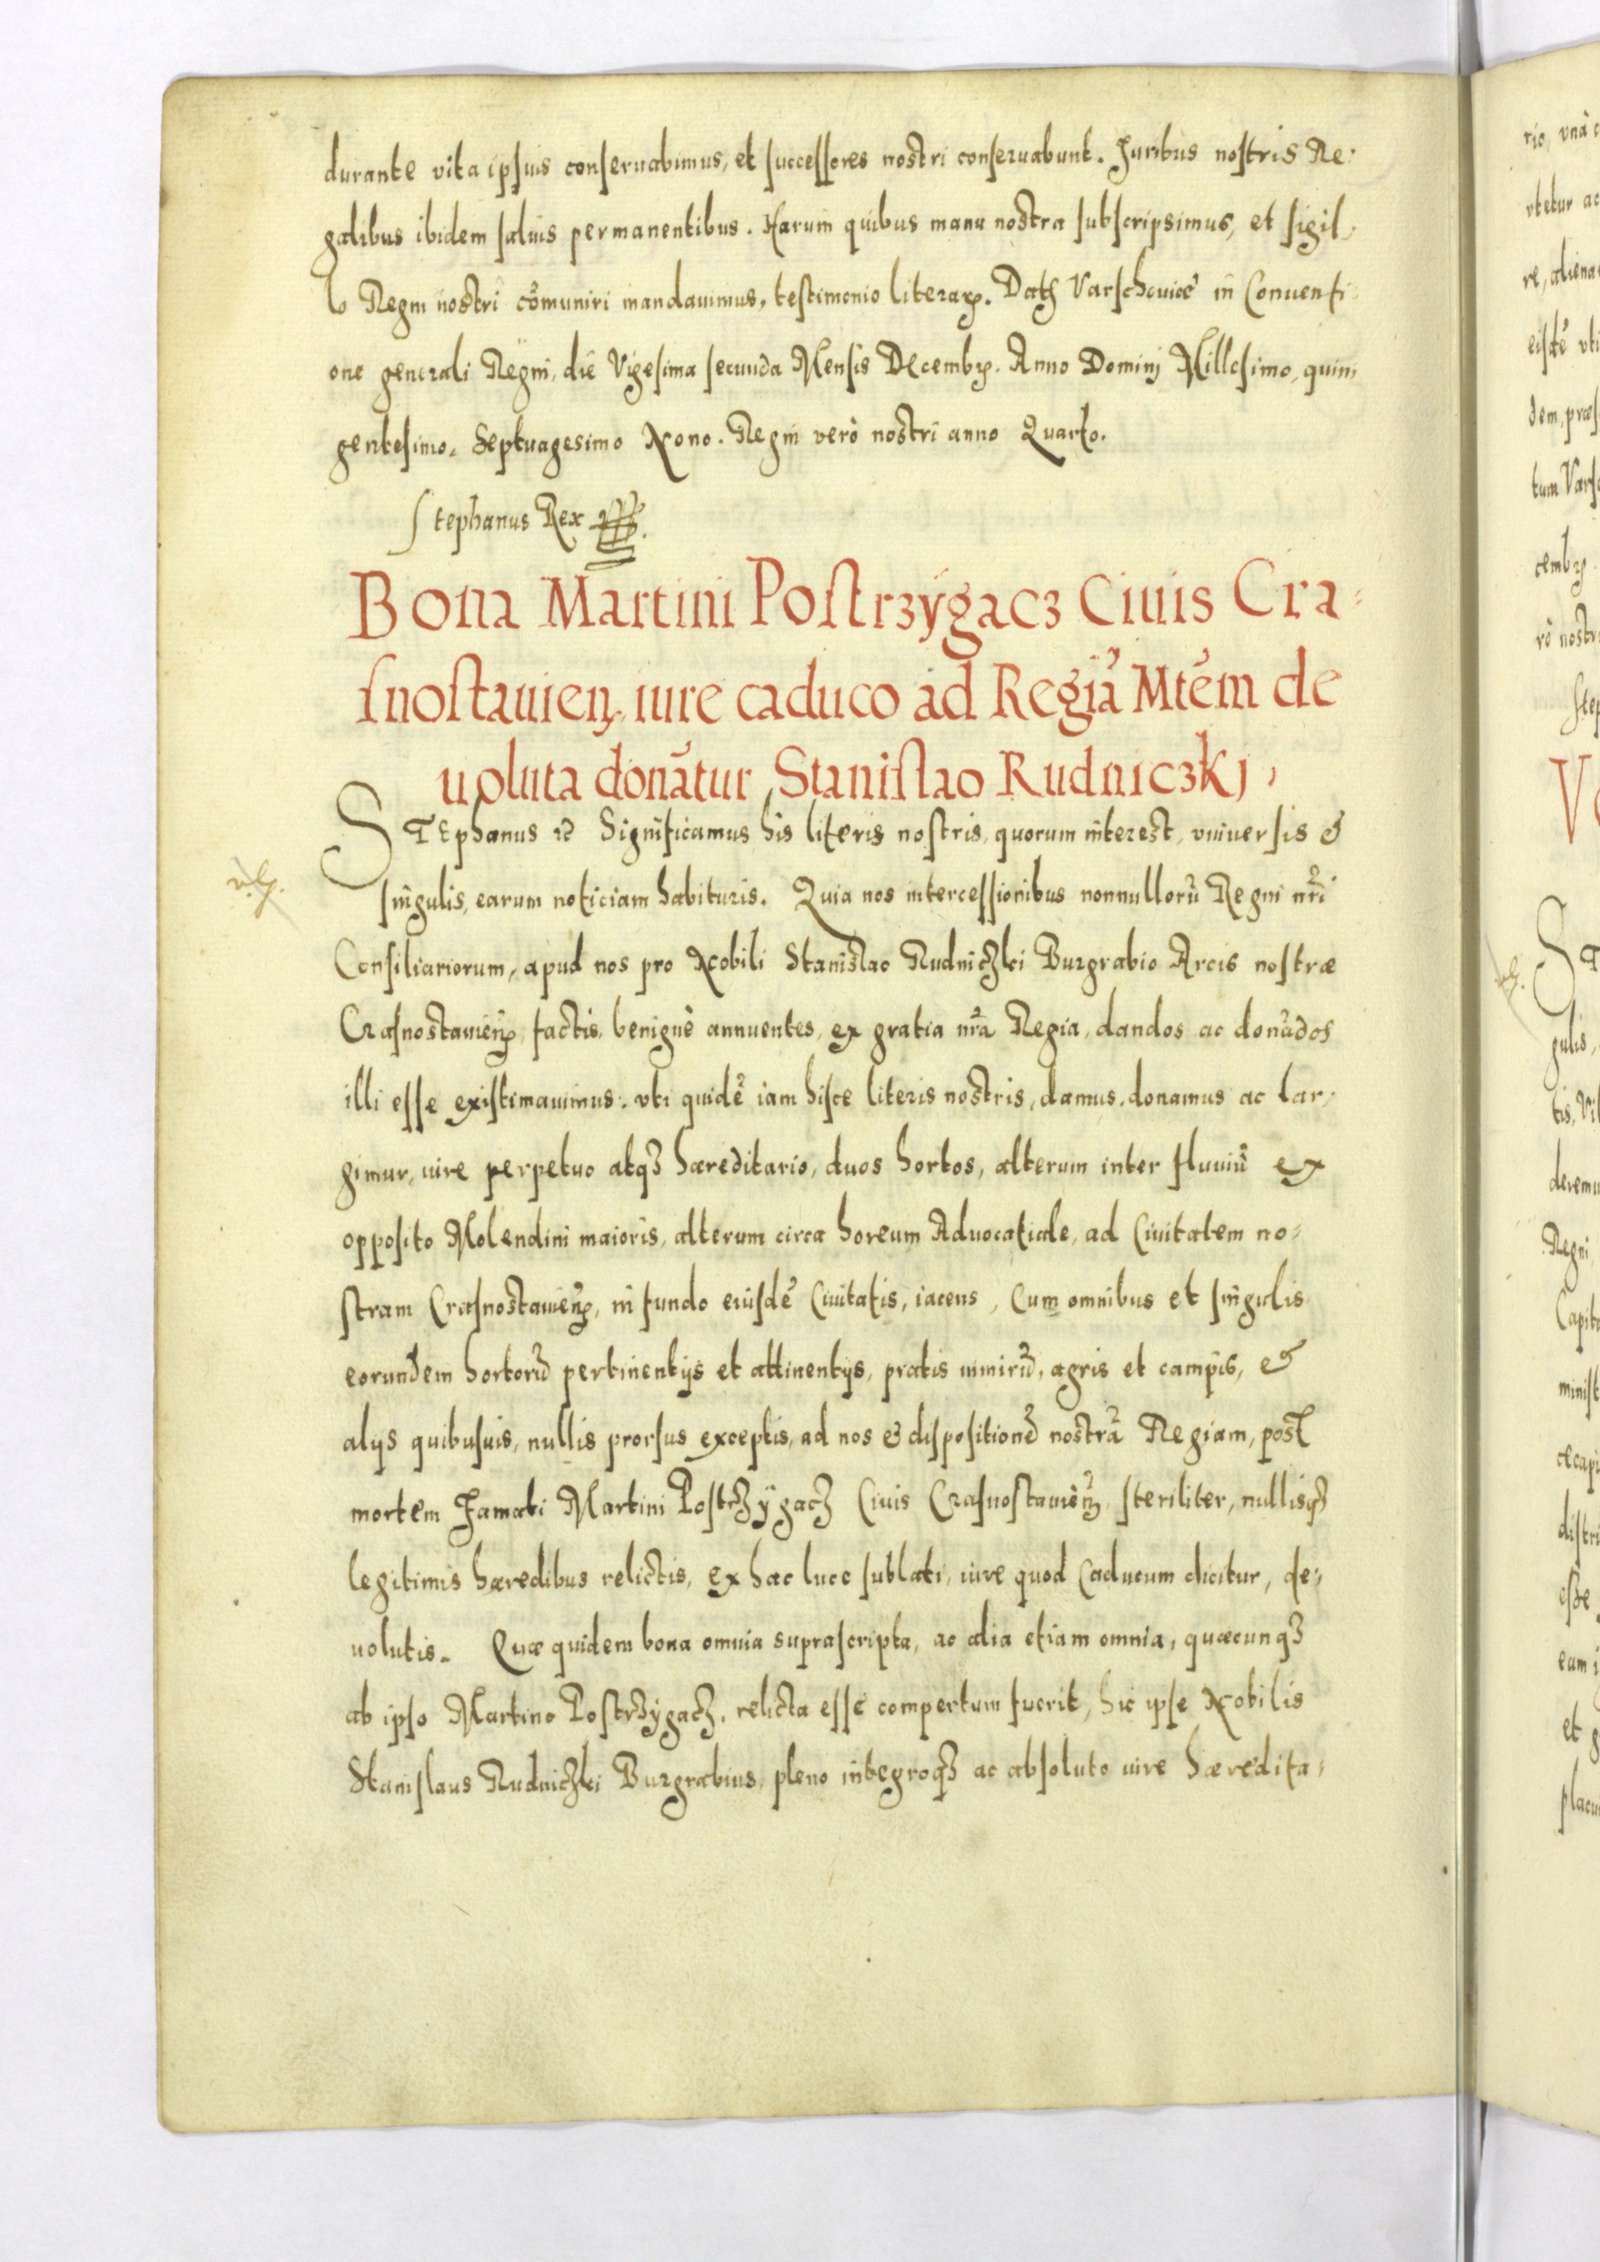 durante vita ipsuis conseruabimus, et successores nostri conseruabunt. Juribus nostris Re-
galibus ibidem saluis permanentibus. Harum quibus manu nostra subscripsimus, et sigil-
lo Regni nostri cōmuniri mandauimus, testimonio literarꝝ. Datꝭ Varschouiæ in Conuenti
one generali Regni, die Vigesima secunda Mensis Decembrꝭ. Anno Dominj Millesimo, quin
gentesimo, Septuagesimo Nono. Regni verò nostri anno Quarto.
Stephanus Rex
Bona Martini Postrzÿgacz Ciuis Cra-
snostauienꝭ, iure caduco ad Regiā Mtēm de
uoluta donātur Stanislao Rudniczkj,
STEphanus ꝛc Significamus his literis nostris, quorum interest, vniuersis &
singulis, earum noticiam habituris. Quia nos intercessionibus nonnullorū Regni nr̄i
Consiliariorum, apud nos pro Nobili Stanislao Rudniczki Burgrabio Arcis nostræ
Crasnostauienꝭ, factis, benignè annuentes, ex gratia nr̄a Regia, dandos ac donādos
illi esse existimauimus. vti quidē iam hisce literis nostris, damus, donamus ac lar-
gimur, iure perpetuo atqꝫ hæreditario, duos hortos, alterum inter fluuiū ex
opposito Molendini maioris, alterum circa horeum Aduocatiale, ad Ciuitatem no-
stram Crasnostauienꝭ, in fundo eiusdē Ciuitatis, iacens, Cum omnibus et singulis
eorundem hortorū pertinentijs et attinentijs, pratis nimirū, agris et campis, &
alijs quibusuis, nullis prorsus exceptis, ad nos & dispositionē nostrā Regiam, post
mortem Famati Martini Postrzÿgacz Ciuis Crasnostauienꝭ, steriliter, nullisqꝫ
legitimis hæredibus relictis, ex hac luce sublati, iure quod Caducum dicitur, de-
uolutis. Quæ quidem bona omnia suprascripta, ac alia etiam omnia, quæcunqꝫ
ab ipso Martino Postrzÿgacz, relicta esse compertum fuerit, hic ipse Nobilis
Stanislaus Rudniczki Burgrabius, pleno integroqꝫ ac absoluto iure hæredita-